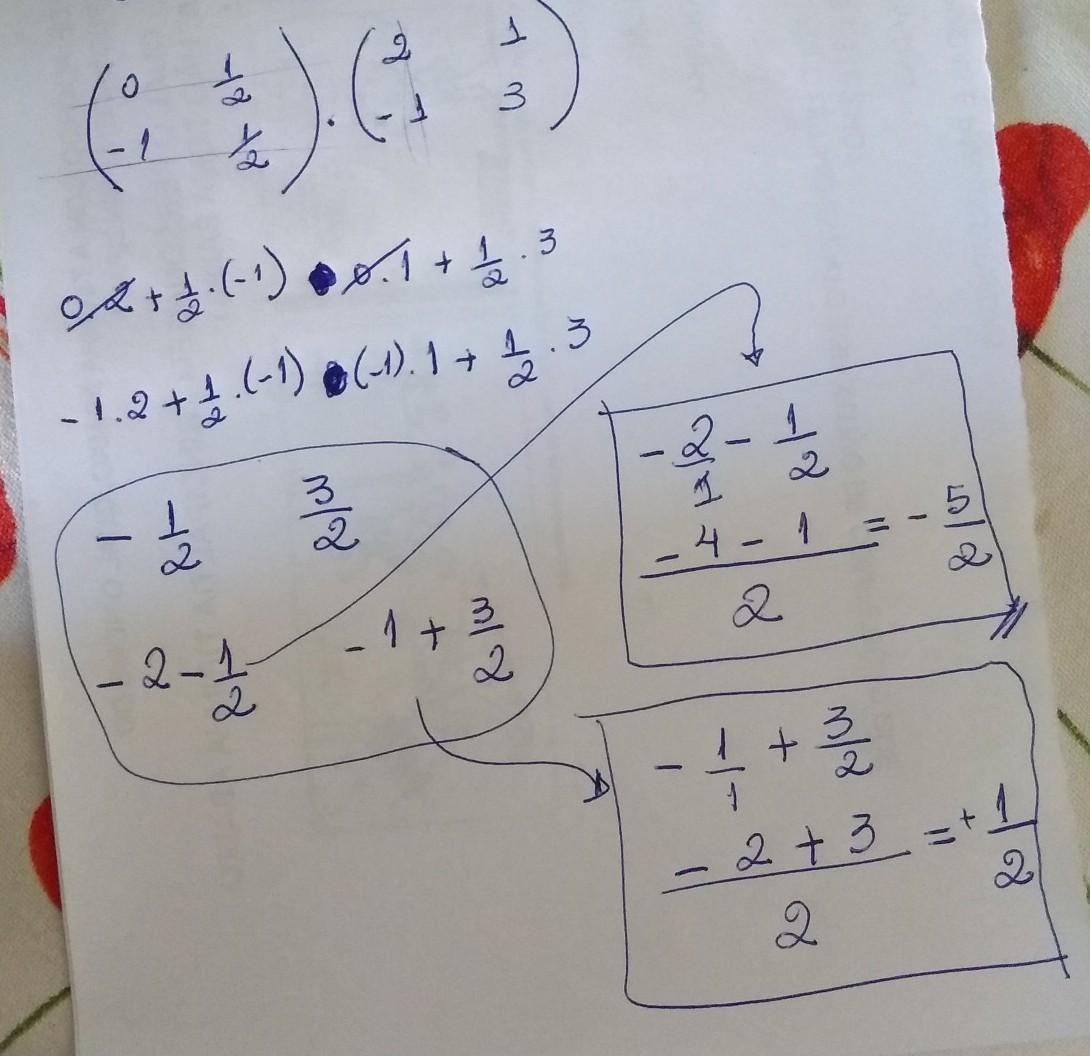 (0 1/2) . (2 1)
(-1 1/2) (-1 3)
0.2 + 1/2.(-1) • 0.1 + 1/2 . 3
-1.2 + 1/2.(-1) • (-1).1 + 1/2 . 3
-1/2 3/2
-2-1/2 -1+3/2
-2/1 - 1/2
-4-1/2 = -5/2
-1/1 + 3/2
-2+3/2 = +1/2